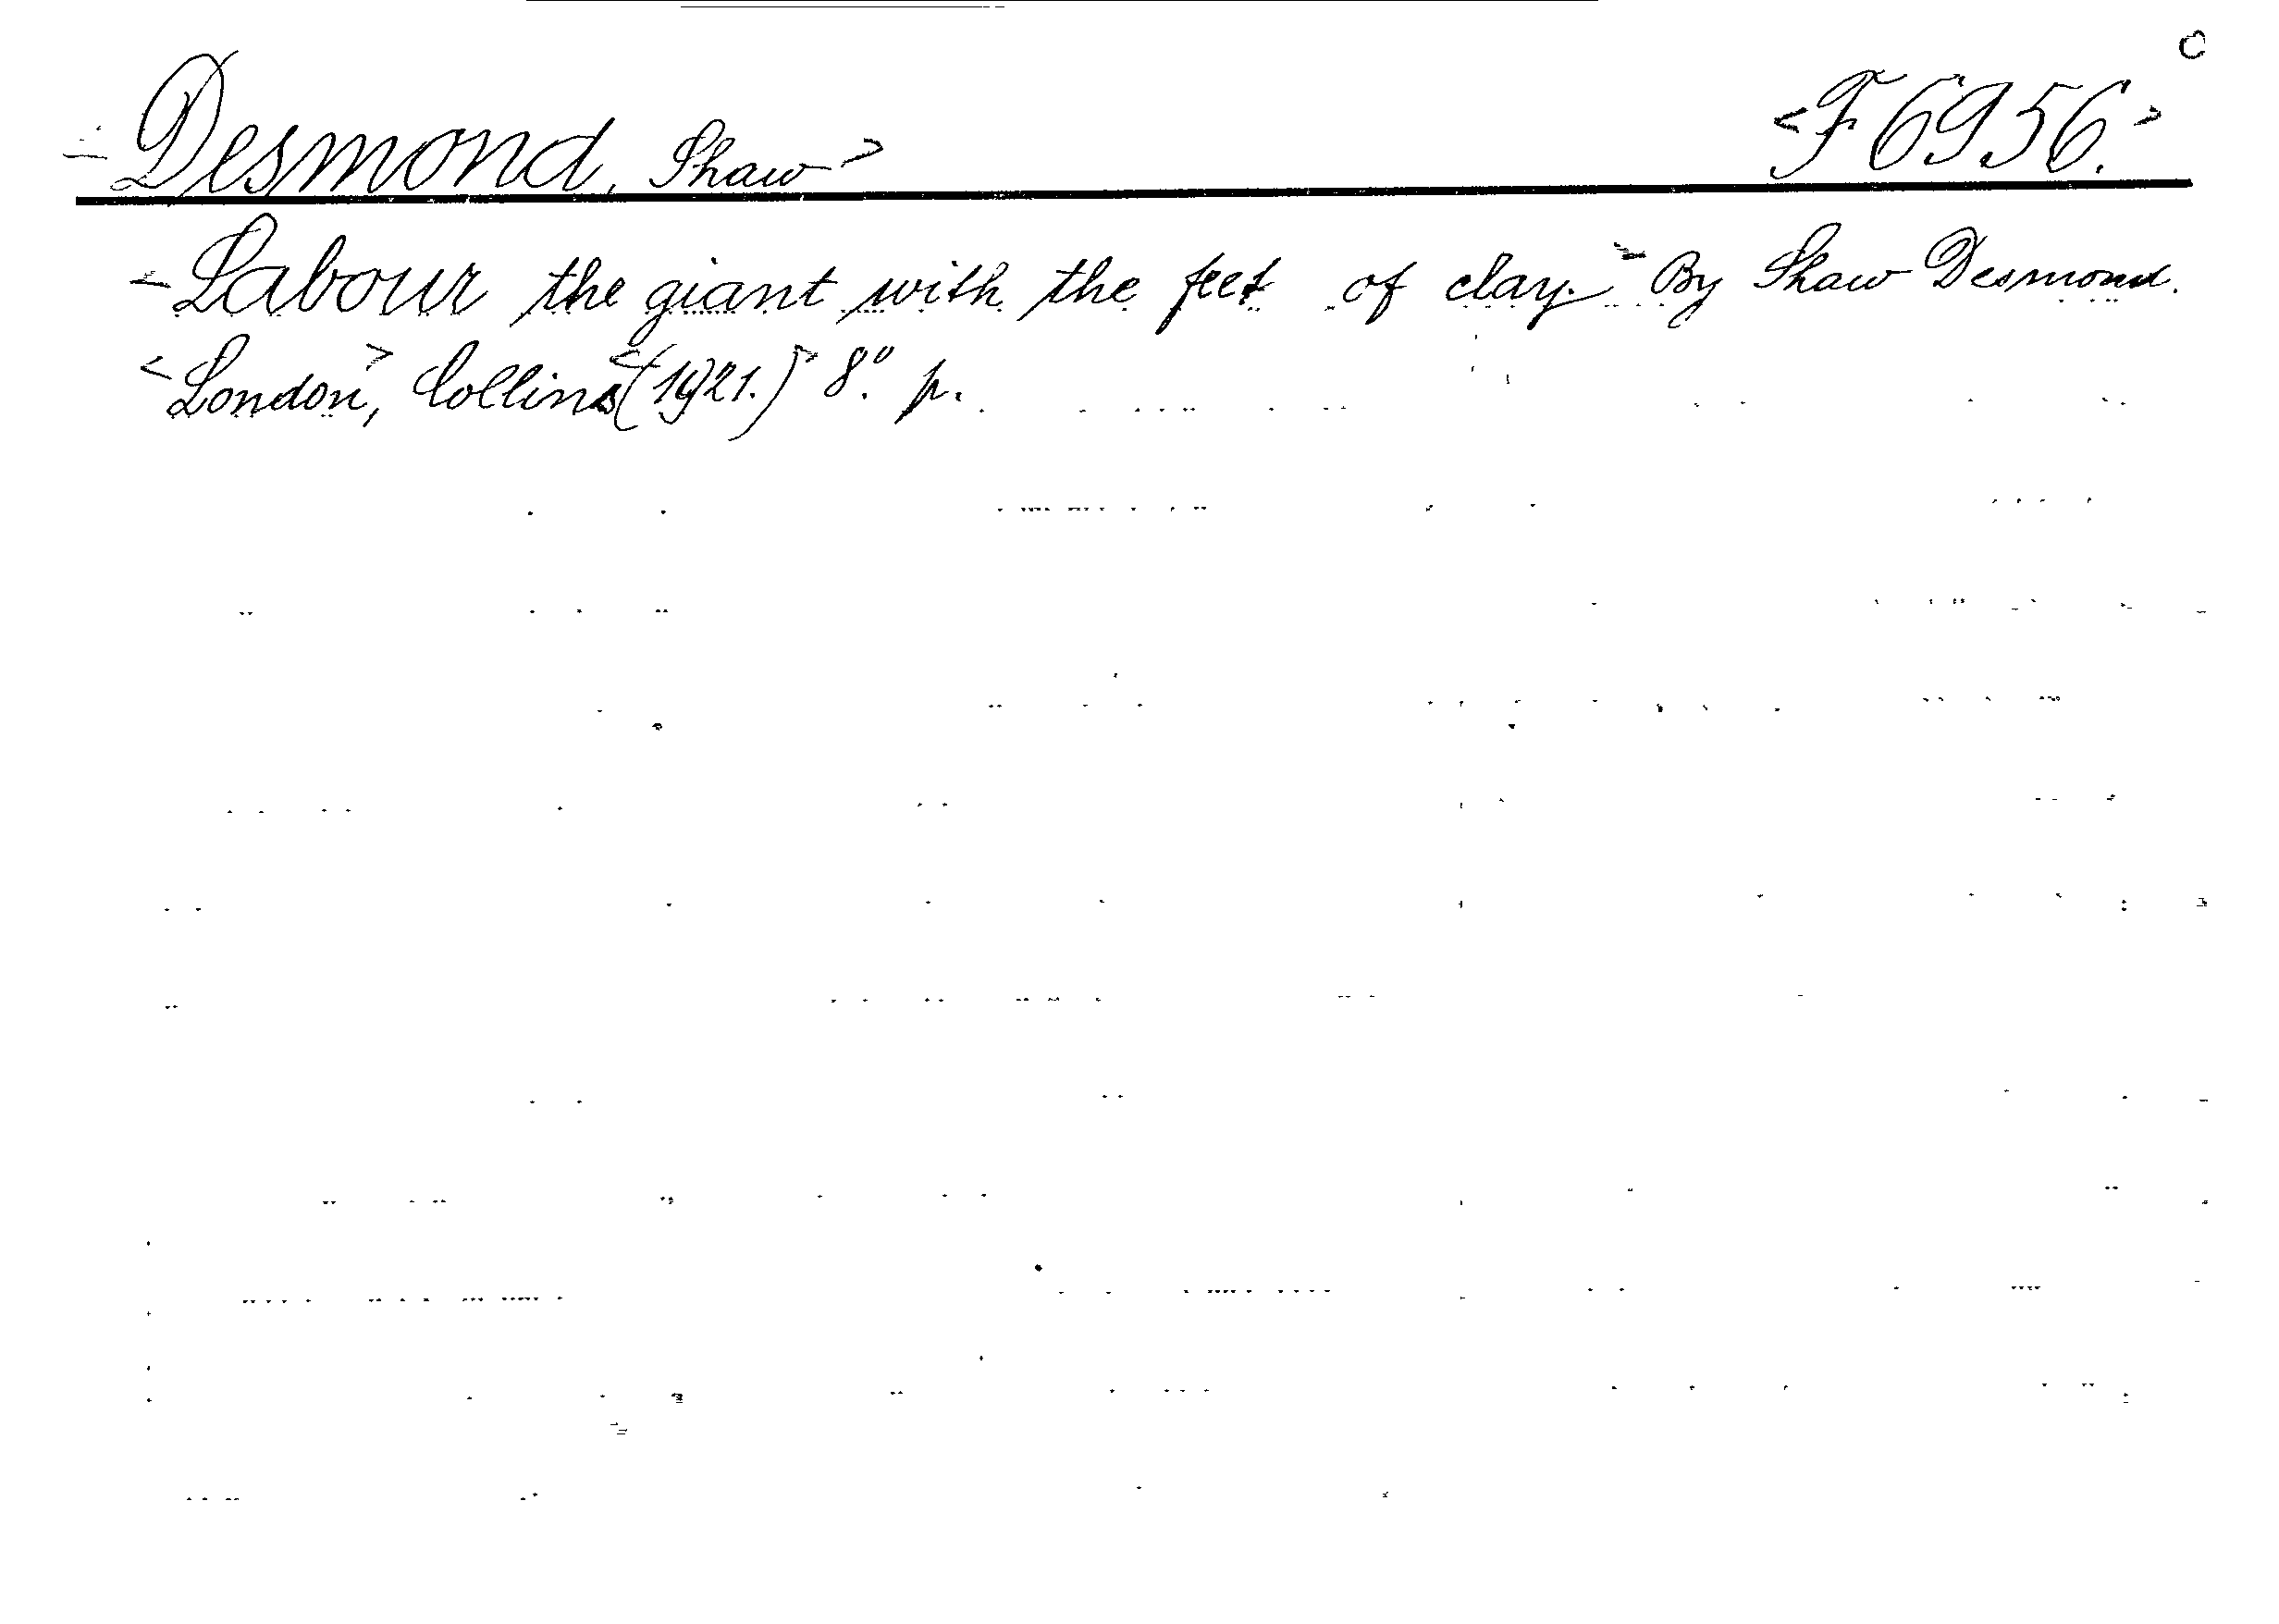 <Desmond, Shaw> <F 6956.>
<Labour the giant with the feet of clay.> By Shaw Desmond.
<London>, Collins <(1921.)> 8º. p.